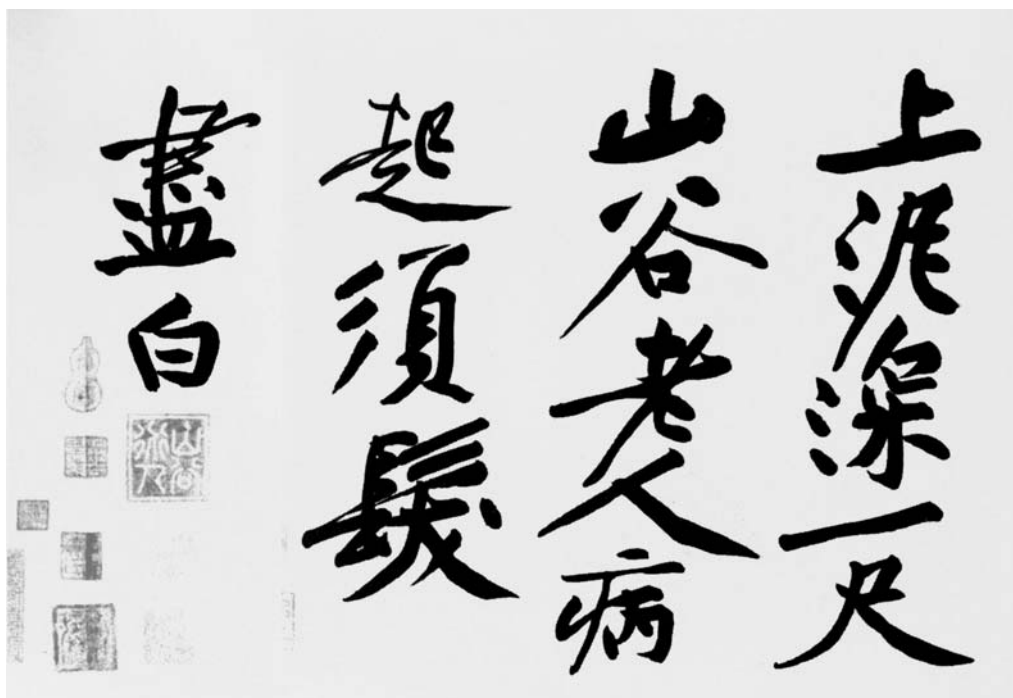 上泥深一尺
山谷老人病
起須髮
盡白
山谷道人